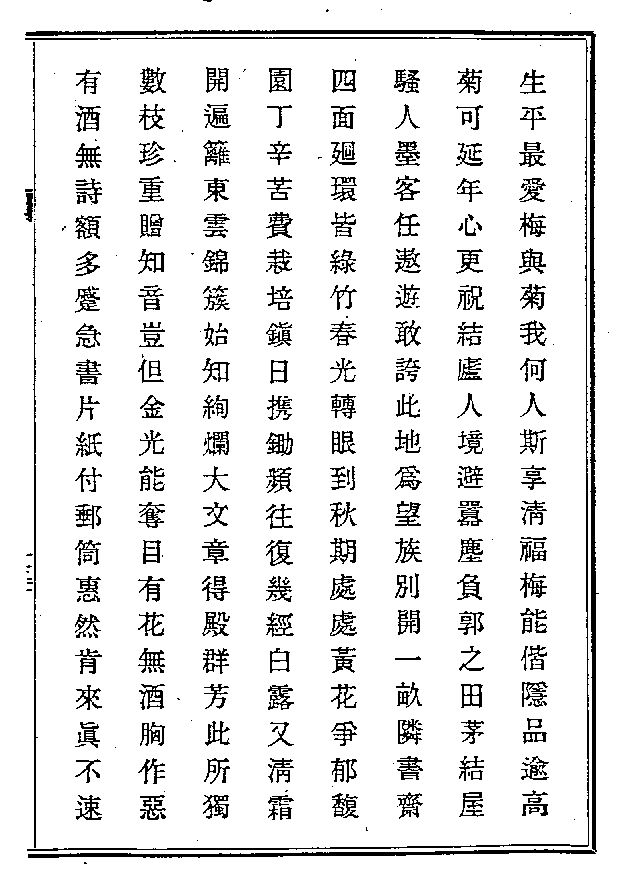 生平最愛梅與菊我何人斯享淸福梅能偕隱品逾高
菊可延年心更祝結廬人境避囂塵負郭之田茅結屋
騷人墨客任遨遊敢誇此地爲望族別開一畝隣書齋
四面廻環皆綠竹春光轉眼到秋期處處黃花爭郁馥
園丁辛苦費栽培鎭日携鋤頻往復幾經白露又淸霜
開遍籬東雲錦簇始知絢爛大文章得殿群芳此所獨
數枝珍重贈知音豈但金光能奪目有花無酒胸作惡
有酒無詩額多蹙急書片紙付郵筒惠然肯來眞不速